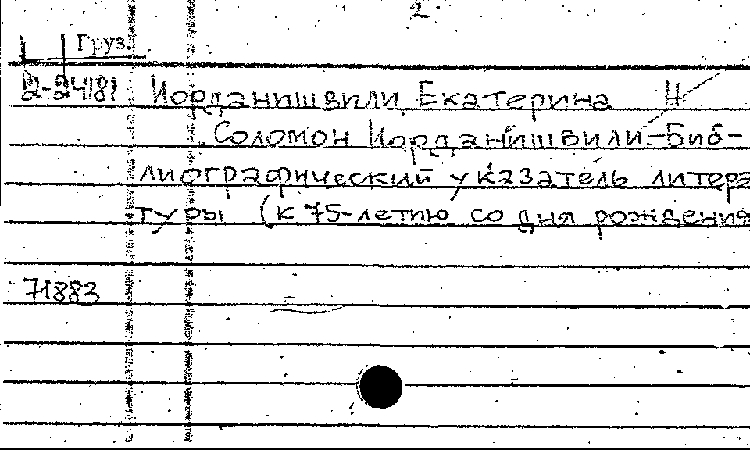 2
Груз.
2-24181 Иорданишвили, Екатерина Н
Соломон Иорданишвили-Биб-
лиографический указатель литера
туры (к 75-летию со дня рождения
71883